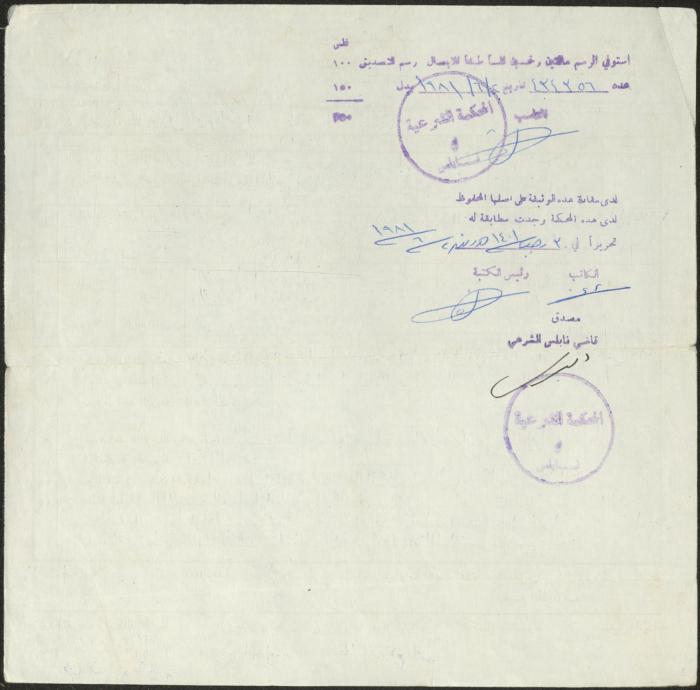 فلس
استوفي الرسم مائتين وخمسين فلساً طبقاً للايصال رسم التصديق ١٠٠
عدده ٤٣٤٢٥٦ تاريخ /٦/١٩٨١ بدل ١٥٠
٢٥٠
المحكمة الشرعية
نابلس
لدى مقابلة هذه الوثيقة على اصلها المحفوظ
لدى هذه المحكمة وجدت مطابقة له
تحريراً في ٣ رجب ١٤٠١ هـ وفق /٦/١٩٨١
الكاتب رئيس الكتبة
مصدق
قاضي نابلس الشرعي
المحكمة الشرعية
نابلس